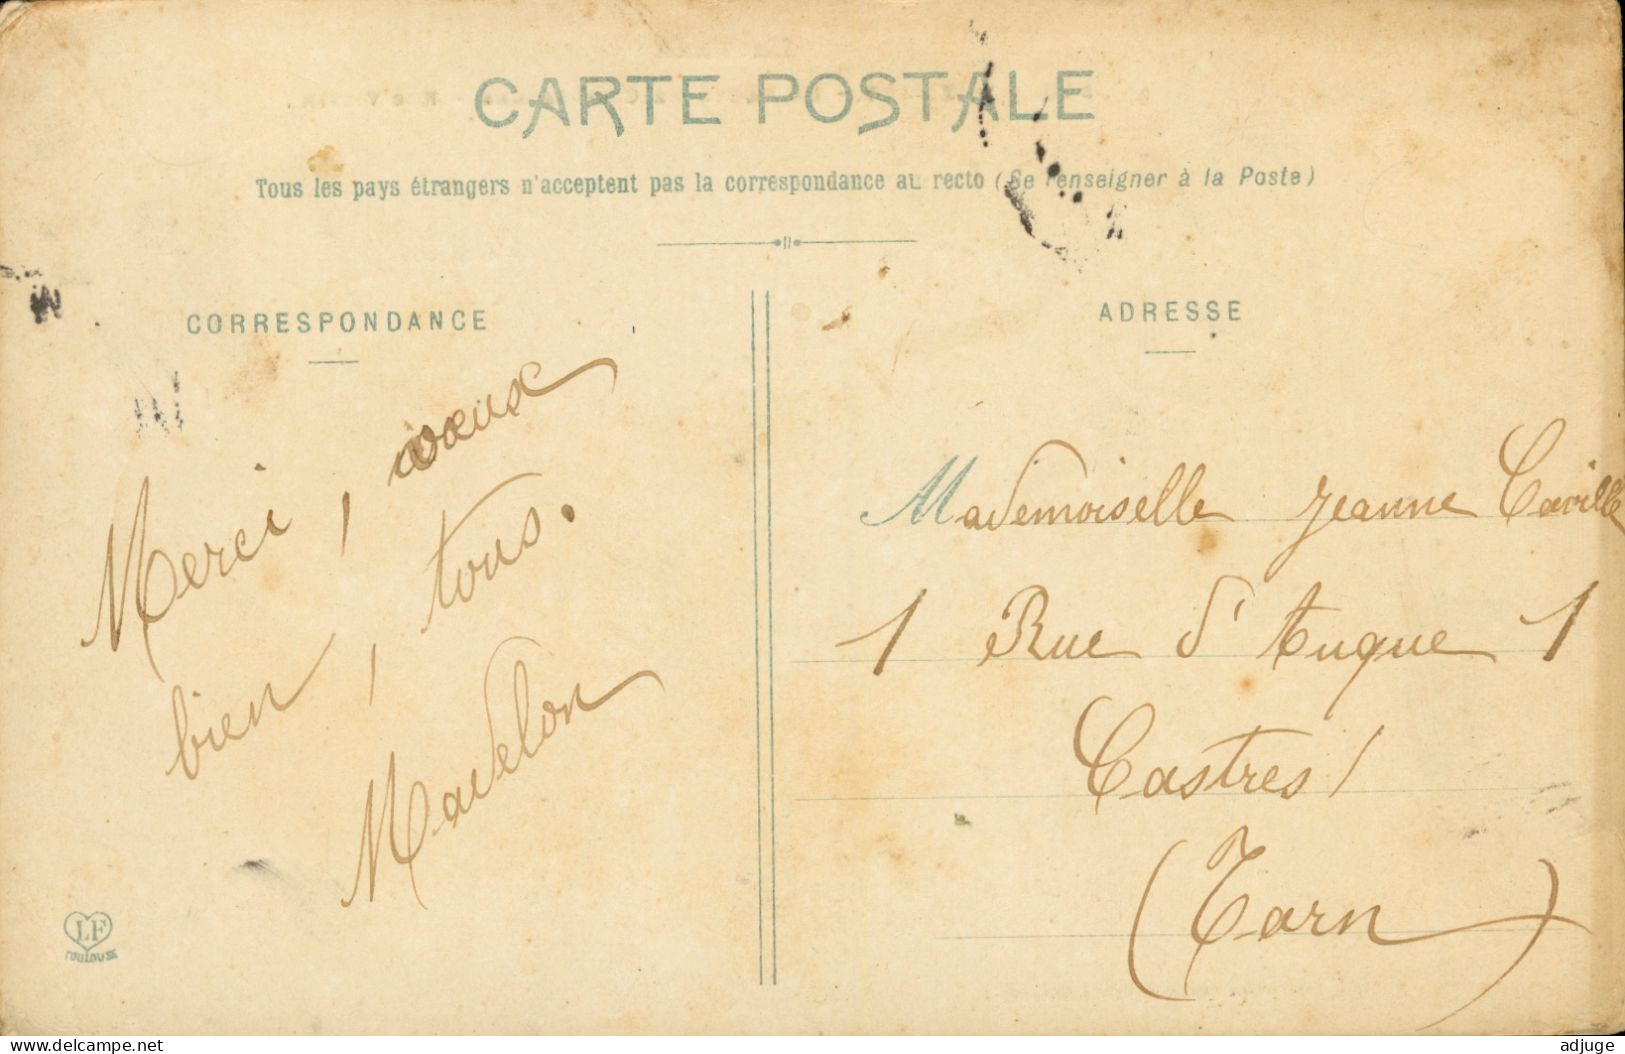 CARTE POSTALE
Tous les pays étrangers n'acceptent pas la correspondance au recto (Se renseigner à la Poste)
CORRESPONDANCE
Merci, vœux
bien, tous.
Madelon
LF
TOULOUSE
ADRESSE
Mademoiselle Jeanne
1 Rue d' 1
Castres
(Tarn)
Delcampe.net
adjuge